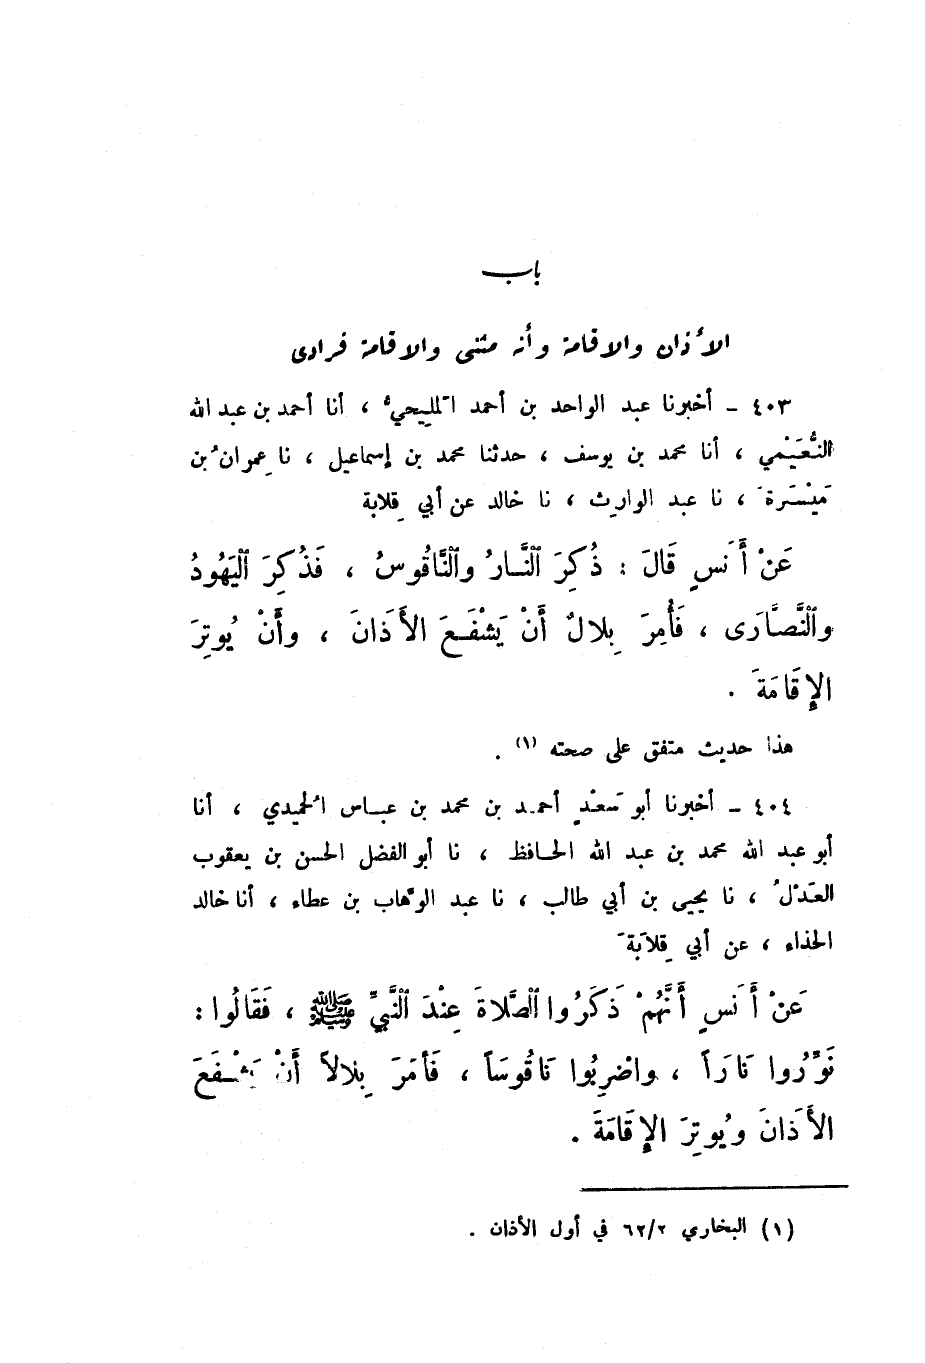 باب
الأذان والاقامة وأنه مثنى والاقامة فرادى
٤٠٣ - أخبرنا عبد الواحد بن أحمد المَلِيحيُّ ، أنا أحمد بن عبد الله
النُّعَيْمي ، أنا محمد بن يوسف ، حدثنا محمد بن إسماعيل ، نا عِمرانُ بن
مَيْسَرةَ ، نا عبد الوارِث ، نا خالد عن أبي قِلابة
عَنْ أَنَسٍ قَالَ : ذُكِرَ ٱلنَّارُ وٱلنَّاقُوسُ ، فَذُكِرَ ٱلْيَهُودُ
وٱلنَّصَارَى ، فَأُمِرَ بِلالٌ أَنْ يَشْفَعَ الأَذَانَ ، وأَنْ يُوتِرَ
الإِقَامَةَ .
هذا حديث متفق على صحته (١) .
٤٠٤ - أخبرنا أبو سَعْدٍ أحمد بن محمد بن عباس الحُميدي ، أنا
أبو عبد الله محمد بن عبد الله الحافظ ، نا أبو الفضل الحسن بن يعقوب
العَدْلُ ، نا يحيى بن أبي طالب ، نا عبد الوهّاب بن عطاء ، أنا خالد
الحذاء ، عن أبي قِلابَةَ
عَنْ أَنَسٍ أَنَّهُمْ ذَكَرُوا ٱلصَّلاةَ عِنْدَ ٱلنَّبِيِّ ﷺ ، فَقَالُوا :
نَوِّرُوا نَاراً ، واضْرِبُوا نَاقُوسَاً ، فَأَمَرَ بِلالاً أَنْ يَشْفَعَ
الأَذَانَ ويُوتِرَ الإِقَامَةَ .
(١) البخاري ٦٢/٢ في أول الأذان .